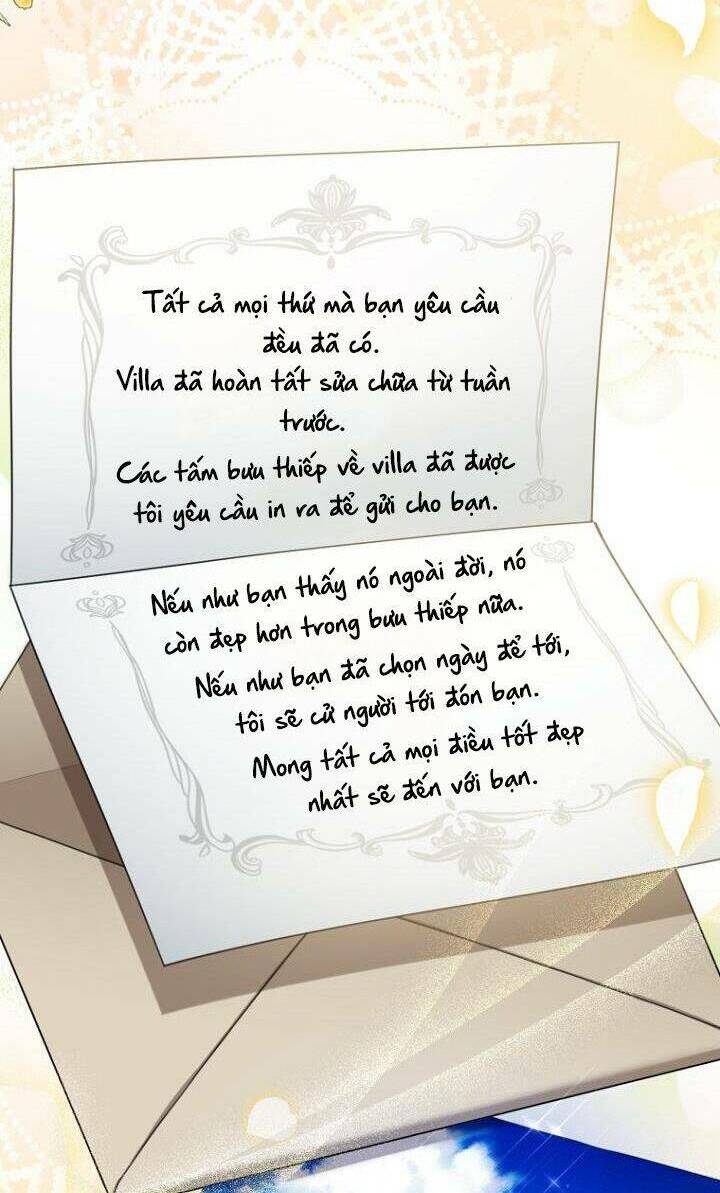 Tất cả mọi thứ mà bạn yêu cầu
đều đã có.
Villa đã hoàn tất sửa chữa từ tuần
trước.
Các tấm bưu thiếp về villa đã được
tôi yêu cầu in ra để gửi cho bạn.
Nếu như bạn thấy nó ngoài đời, nó
còn đẹp hơn trong bưu thiếp nữa.
Nếu như bạn đã chọn ngày để tới,
tôi sẽ cử người tới đón bạn.
Mong tất cả mọi điều tốt đẹp
nhất sẽ đến với bạn.